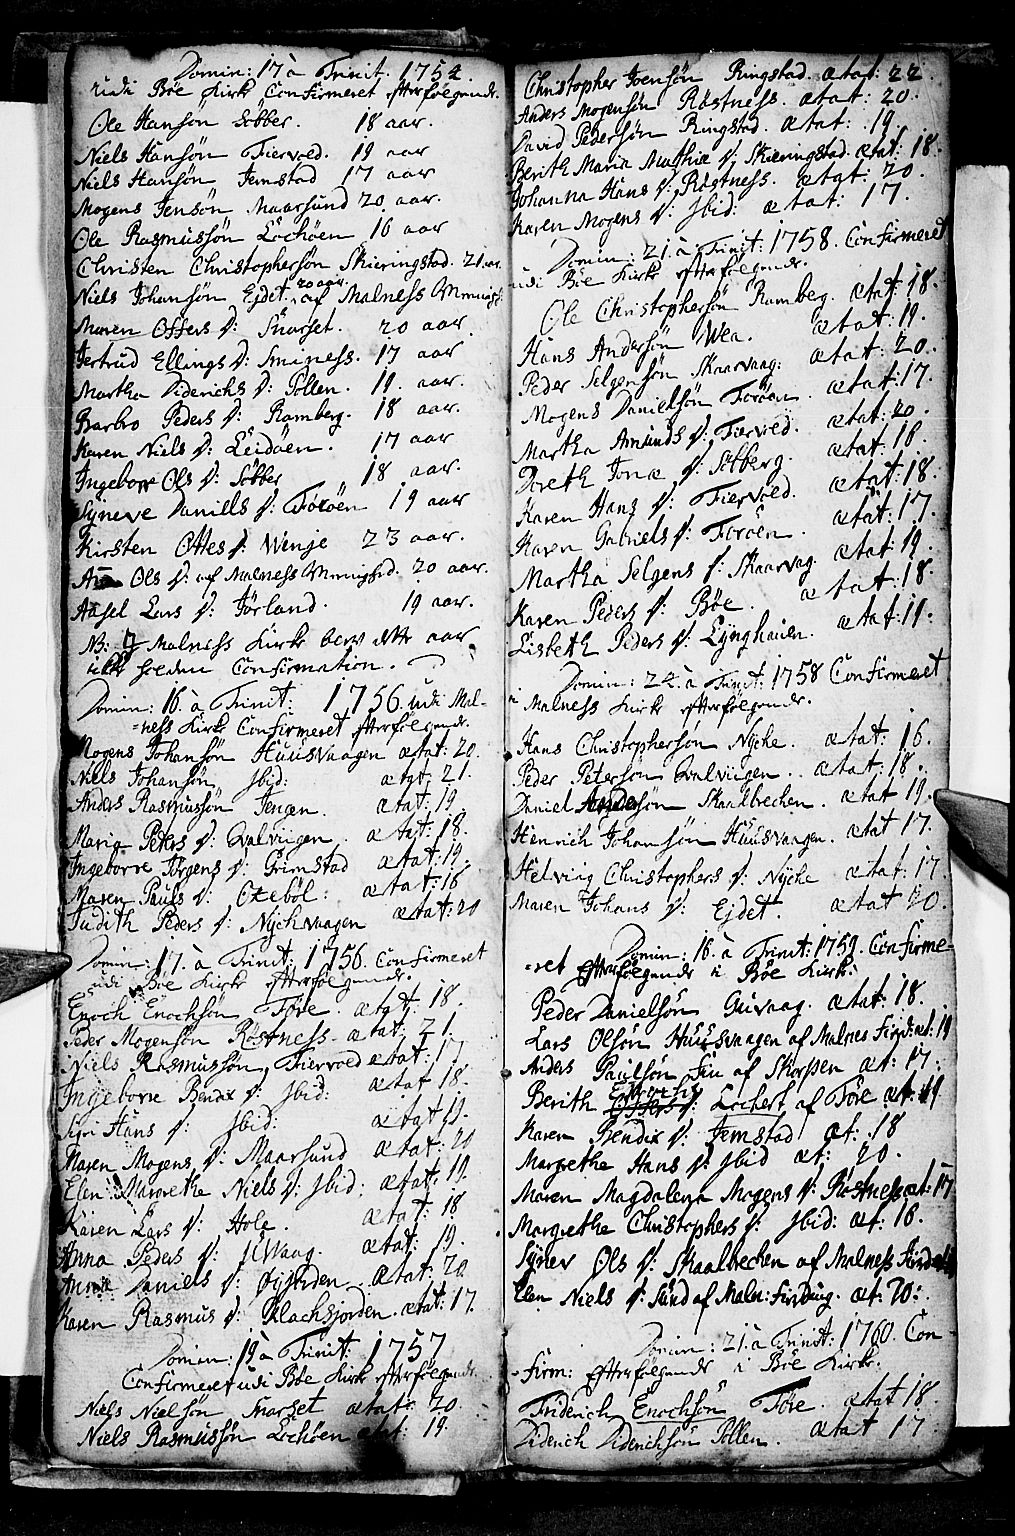 Domin: 17 à Trinit. 1754.
udi Bøe Kirke Confirmeret efterfølgende.
Ole Hansøn Sobber. 18 aar.
Niels Hansøn Fiervoed. 19 aar
Niels Hansøn Jemstad 17 aar
Mogens Jensøn Maarsund 20. aar.
Ole Rasmussøn Lochøen 16 aar
Christen Christophersøn Skieringstad. 21. aar.
Niels Johansøn Ejdet. 20 aar. af Malness
Maren Offers d: Snarset. 20 aar
Jertrud Ellings d: Sminess. 17 aar
Martha Diderichs d: Pollen. 19. aar.
Barbro Peders d: Ramberg. 18 aar.
Karen Niels d: Leidøen. 17 aar
Ingeborre Ols d: Sobber 18 aar.
Syneve Daniells d: Forøen 19 aar
Kirsten Ottes d: Wenje 23 aar.
Ols d: af Malness Menighed. 20 aar.
Aasel Lars d: Jørland. 19 aar.
NB: Malness Kirke blev dette aar
ikke holden Confirmation.
Domin: 16. à Trinit: 1756. udi Mal-
=ness Kirke Confirmeret efterfølgende.
Mogens Johansøn Huusvaagen ætat: 20.
Niels Johansøn Ibid: ætat: 21.
Anders Rasmussøn Jencen ætat: 19.
Maria Peters d: Qvalviigen ætat: 18.
Ingeborre Jørgens d: Grimstad ætat: 19.
Maren Pauls d: Oxebøl: ætat: 18
Judith Peders d: Nychvaagen ætat: 20
Domin: 17. à Trinit: 1756. Confirmeret
udi Bøe Kirke efterfølgende.
Enoch Enochsøn Føre. ætat: 18.
Peder Mogensøn Røstness - ætat: 21.
Niels Rasmussøn Fiervoed ætat: 17
Ingeborre Bendix d: Ibid: ætat 18.
Siri Hans d: Ibid: ætat 19.
Maren Mogens d: Maarsund ætat: 20
Elen Margrethe Niels d: Ibid: ætat: 19.
Karen Lars d: Hole. ætat: 18
Anna Peders d: Waag. ætat: 19.
Anna Daniels d: ætat: 20
Karen Rasmus d: Klachsjorden. ætat: 17.
Domin: 19 à Trinit: 1757
Confirmeret udi Bøe Kirke efterfølgende.
Niels Nielsøn Snarset ætat: 20.
Niels Rasmussøn Lochøen ætat: 19.
Christopher Joensøn Ringstad. ætat: 22.
Anders Mogensøn Røstness. ætat: 20.
David Pedersøn Ringstad. ætat: 19.
Berith Maria Mathiæ d: Skieringstad. ætat: 18.
Johanna Hans d: Røstness. ætat: 20.
Karen Mogens d: Ibid: ætat: 17.
Domin: 21. à Trinit: 1758. Confirmeret
udi Bøe Kirke efterfølgende.
Ole Christophersøn Ramberg. ætat: 18.
Hans Andersøn Wea. ætat: 19.
Peder Selgensøn Skaarvaag: ætat: 20.
Mogens Danielsøn Forøen. ætat: 17.
Martha Amunds d: Fiervoed. ætat: 20.
Doreth Jonæ d: Sobberg. ætat: 18
Karen Hans d: Fiervoed. ætat: 18.
Karen Gabriels d: Forøen. ætat: 17.
Martha Selgens d: Skaarvag. ætat: 19.
Karen Peders d: Bøe. ætat: 18.
Lisbeth Peders d: Lynghauen. ætat: 19.
Domin: 24. à Trinit: 1758 Confirmeret
i Malness Kirke efterfølgende.
Hans Christophersøn Nyche. ætat: 16.
Peder Petersøn Qvalviigen. ætat: 18.
Daniel Andersøn Skaalbrechen. ætat 19.
Henrich Johansøn Huusvaagen. ætat 17.
Helvig Christophers d: Nyche ætat: 17
Maren Johans d: Ejdet. ætat 20.
Domin: 16. à Trinit: 1759. Confirme-
=ret efterfølgende i Bøe Kirke.
Peder Danielsøn Guvaag. ætat: 18.
Lars Olsøn Huusvaagen af Malnes Fird: æt: 19
Anders Paulsøn Siu af Skorpsen æt: 17.
Berith Enochs d: Lochert af Føre æt: 19
Karen Bendix d: Jemstad æt: 18
Margrethe Hans d: Ibid æt: 20.
Maren Magdalena Mogens d: Røstness æt: 17
Margrethe Christophers d: Ibid: æt: 18.
Synev Ols d: Skaalbrechen af Malness
Elen Niels d: Sund af Maln: æt: 20:
Domin: 21. à Trinit: 1760. Con-
-firm: efterfølgende i Bøe Kirke.
Friderich Enochsøn Føre. ætat 18.
Diderich Diderichsøn Pollen. ætat 17